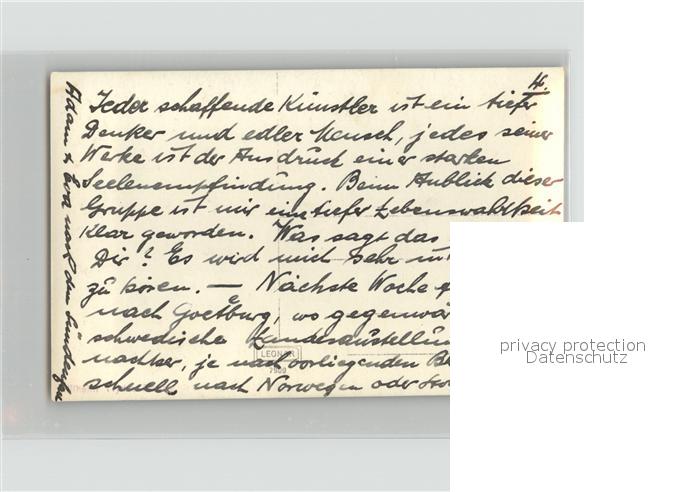 4.
Jeder schaffende Künstler ist ein tiefer
Denker und edler Mensch, jedes seiner
Werke ist der Ausdruck einer starken
Seelenempfindung. Beim Anblick dieser
Gruppe ist mir eine tiefer Lebenswahrheit
klar geworden. Was sagt das
Dir? Es wird mich sehr int
zu hören. — Nächste Woche
nach Goetburg, wo gegenwär
schwedische Landesaustellun
nachher, je nach vorliegenden
schnell nach Norwegen oder
Adam & Eva nach dem Sündenfall
LEONAR
privacy protection
Datenschutz